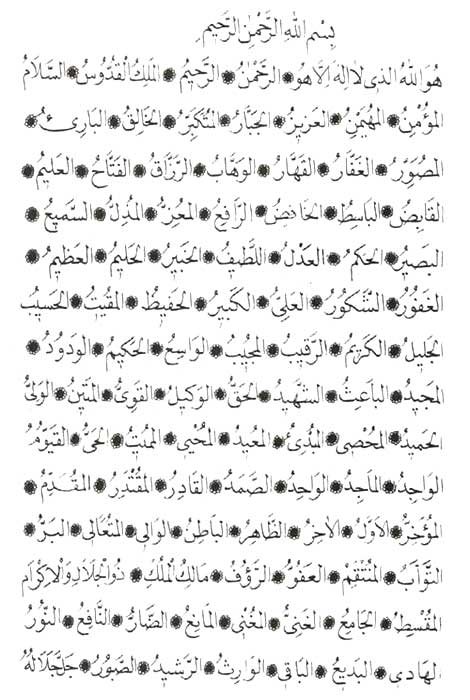 بِسْمِ اللهِ الرَّحْمٰنِ الرَّحِيمِ
هُوَ اللهُ الَّذِي لَا إِلٰهَ إِلَّا هُوَ الرَّحْمٰنُ الرَّحِيمُ المَلِكُ القُدُّوسُ السَّلَامُ
المُؤْمِنُ المُهَيْمِنُ العَزِيزُ الجَبَّارُ المُتَكَبِّرُ الخَالِقُ البَارِئُ
المُصَوِّرُ الغَفَّارُ القَهَّارُ الوَهَّابُ الرَّزَّاقُ الفَتَّاحُ العَلِيمُ
القَابِضُ البَاسِطُ الخَافِضُ الرَّافِعُ المُعِزُّ المُذِلُّ السَّمِيعُ
البَصِيرُ الحَكَمُ العَدْلُ اللَّطِيفُ الخَبِيرُ الحَلِيمُ العَظِيمُ
الغَفُورُ الشَّكُورُ العَلِيُّ الكَبِيرُ الحَفِيظُ المُقِيتُ الحَسِيبُ
الجَلِيلُ الكَرِيمُ الرَّقِيبُ المُجِيبُ الوَاسِعُ الحَكِيمُ الوَدُودُ
المَجِيدُ البَاعِثُ الشَّهِيدُ الحَقُّ الوَكِيلُ القَوِيُّ المَتِينُ الوَلِيُّ
الحَمِيدُ المُحْصِي المُبْدِئُ المُعِيدُ المُحْيِي المُمِيتُ الحَيُّ القَيُّومُ
الوَاجِدُ المَاجِدُ الوَاحِدُ الصَّمَدُ القَادِرُ المُقْتَدِرُ المُقَدِّمُ
المُؤَخِّرُ الأَوَّلُ الآخِرُ الظَّاهِرُ البَاطِنُ الوَالِي المُتَعَالِي البَرُّ
التَّوَّابُ المُنْتَقِمُ العَفُوُّ الرَّؤُفُ مَالِكُ المُلْكِ ذُو الجَلَالِ وَالإِكْرَامِ
المُقْسِطُ الجَامِعُ الغَنِيُّ المُغْنِي المَانِعُ الضَّارُّ النَّافِعُ النُّورُ
الهَادِي البَدِيعُ البَاقِي الوَارِثُ الرَّشِيدُ الصَّبُورُ جَلَّ جَلَالُهُ